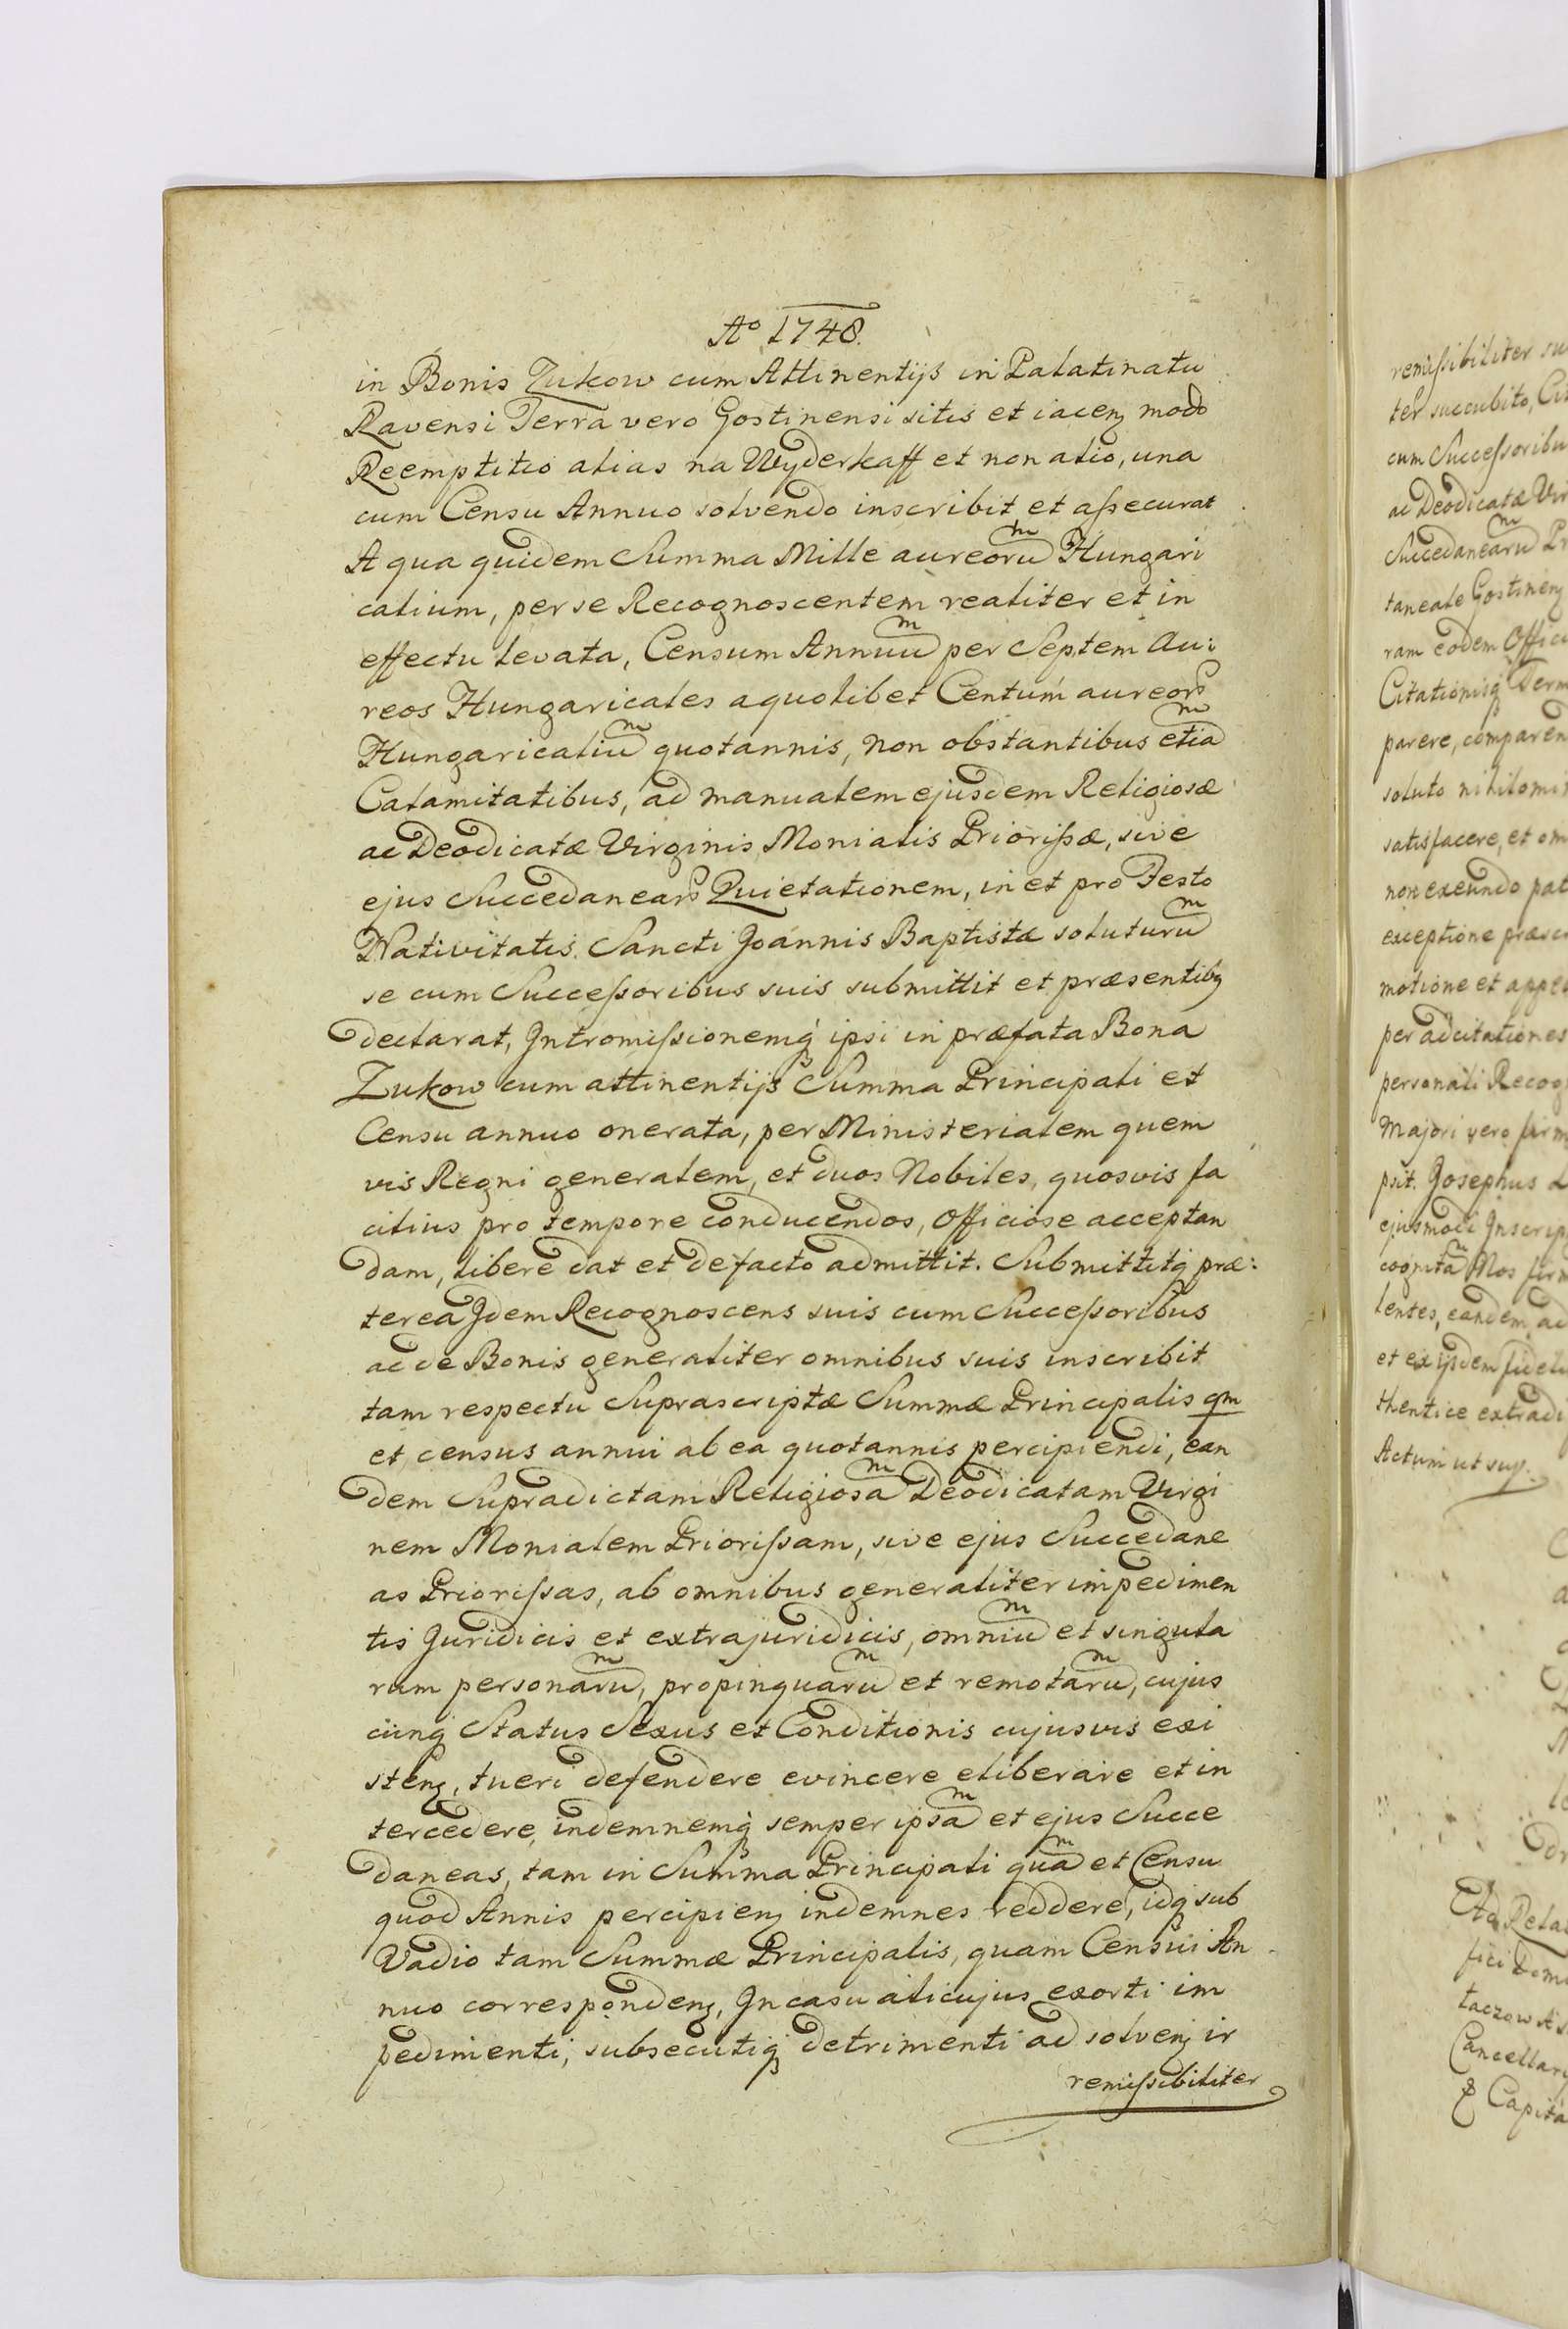 Aº 1748.
in Bonis Zukow cum Attinentijs in Palatinatu
Ravensi Terra vero Gostinensi sitis et iacenʒ modo
Reemptitio alias na Wyderkaff et non alio, una
cum Censu Annuo solvendo inscribit et aſsecurat
A qua quidem Summa Mille aureoruͫ Hungari
calium, per se Recognoscentem realiter et in
effectu levata, Censum Annuuͫ per Septem Au:
reos Hungaricales a quolibet Centum aureorꝝ
Hungaricaliuͫ quotannis, non obstantibus etiaͫ
Calamitatibus, ad manualem ejusdem Religiosæ
ac Deodicatæ Virginis Monialis Prioriſsæ, sive
ejus Succedanearꝝ Quietationem, in et pro Festo
Nativitatis Sancti Joannis Baptistæ soluturuͫ
se cum Succeſsoribus suis submittit et præsentibꝫ
declarat, Intromiſsionemq́ ipsi in præfata Bona
Zukow cum attinentijs Summa Principali et
Censu annuo onerata, per Ministerialem quem
vis Regni generalem, et duos Nobiles, quosvis fa
cilius pro tempore conducendos, Officiose acceptan
dam, libere dat et defacto admittit. Submittitq́ præ:
terea Idem Recognoscens suis cum Succeſsoribus
ac de Bonis generaliter omnibus suis inscribit
tam respectu Suprascriptæ Summæ Principalis qm
et census annui ab ea quotannis percipiendi, ean
dem Supradictam Religiosaͫ Deodicatam Virgi
nem Monialem Prioriſsam, sive ejus Succedane
as Prioriſsas, ab omnibus generaliter impedimen
tis Juridicis et extrajuridicis, omniuͫ et singula
rum personaruͫ, propinquaruͫ et remotaruͫ, cujus
cunq́ Status Sexus et Conditionis cujusvis exi
stenʒ, tueri defendere evincere eliberare et in
tercedere, indemnemq́ semper ipsaͫ et ejus Succe
daneas, tam in Summa Principali quaͫ et Censu
quod Annis percipienʒ indemnes reddere, idq́ sub
Vadio tam Summæ Principalis, quam Censui An
nuo correspondenʒ, In casu alicujus exorti im
pedimenti, subsecutiq́ detrimenti ad solvenʒ ir
remiſsibiliter
remiſsibiliter su
ter succubito, Ci
cum Succeſsoribu
ac Deodicatæ Vir
Succedanearuͫ Pr
taneale Gostinenʒ
ram eodem Offici
Citationisq́ Term
parere, comparen
soluto nihilomi
satisfacere, et om
non exeundo pat
exceptione præscr
motione et appel
per adcitationes
personali Recog
Majori vero firm
psit. Josephus
ejusmodi Inscrip
cognitaͫ Nos firm
lentes, eandem ad
et ex ijsdem fideli
thentice extradi
Actum ut sup.
Ad Rela
fici Domi
Cancellary
& Capita